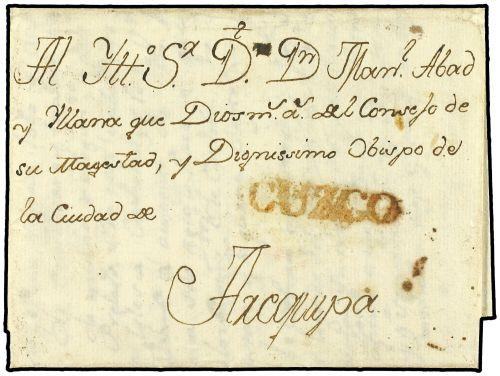 Al Yllt.º S.ºʳ D.ʳ Dⁿ Man.ˡ Abad
y Yllana que Dios m.ˢ a.ˢ del Consejo de
su Magestad, y Dignissimo Obispo de
la Ciudad de
CUZCO
Arequipa